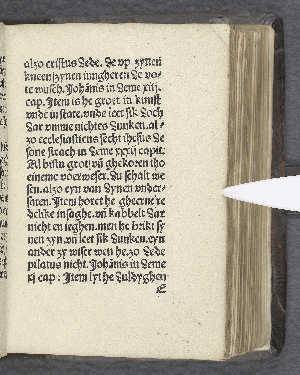 alzo cristus dede. de vp zynen
kneen zynen iungheren de vo-
te wusch. Johānis in deme xiij.
cap. Item is he groet in kunst
vnde in state. vnde leet sik doch
dar vmme nichtes dunken. al-
zo ecclesiasticus secht ihesus de
sone sirach in deme xxxij capit.
Al bistu grot vñ ghekoren tho
eineme vorweser. du schalt we-
sen. alzo eyn van dynen vnder-
saten. Item horet he gherne re
delike insaghe. vñ kabbelt dar
nicht en ieghen. men he brikt sy
nen zyn. vñ leet sik dunken. eyn
ander zy wiser wen he. zo dede
pilatus nicht. Johānis in deme
xj cap : Item lyt he duldyghen